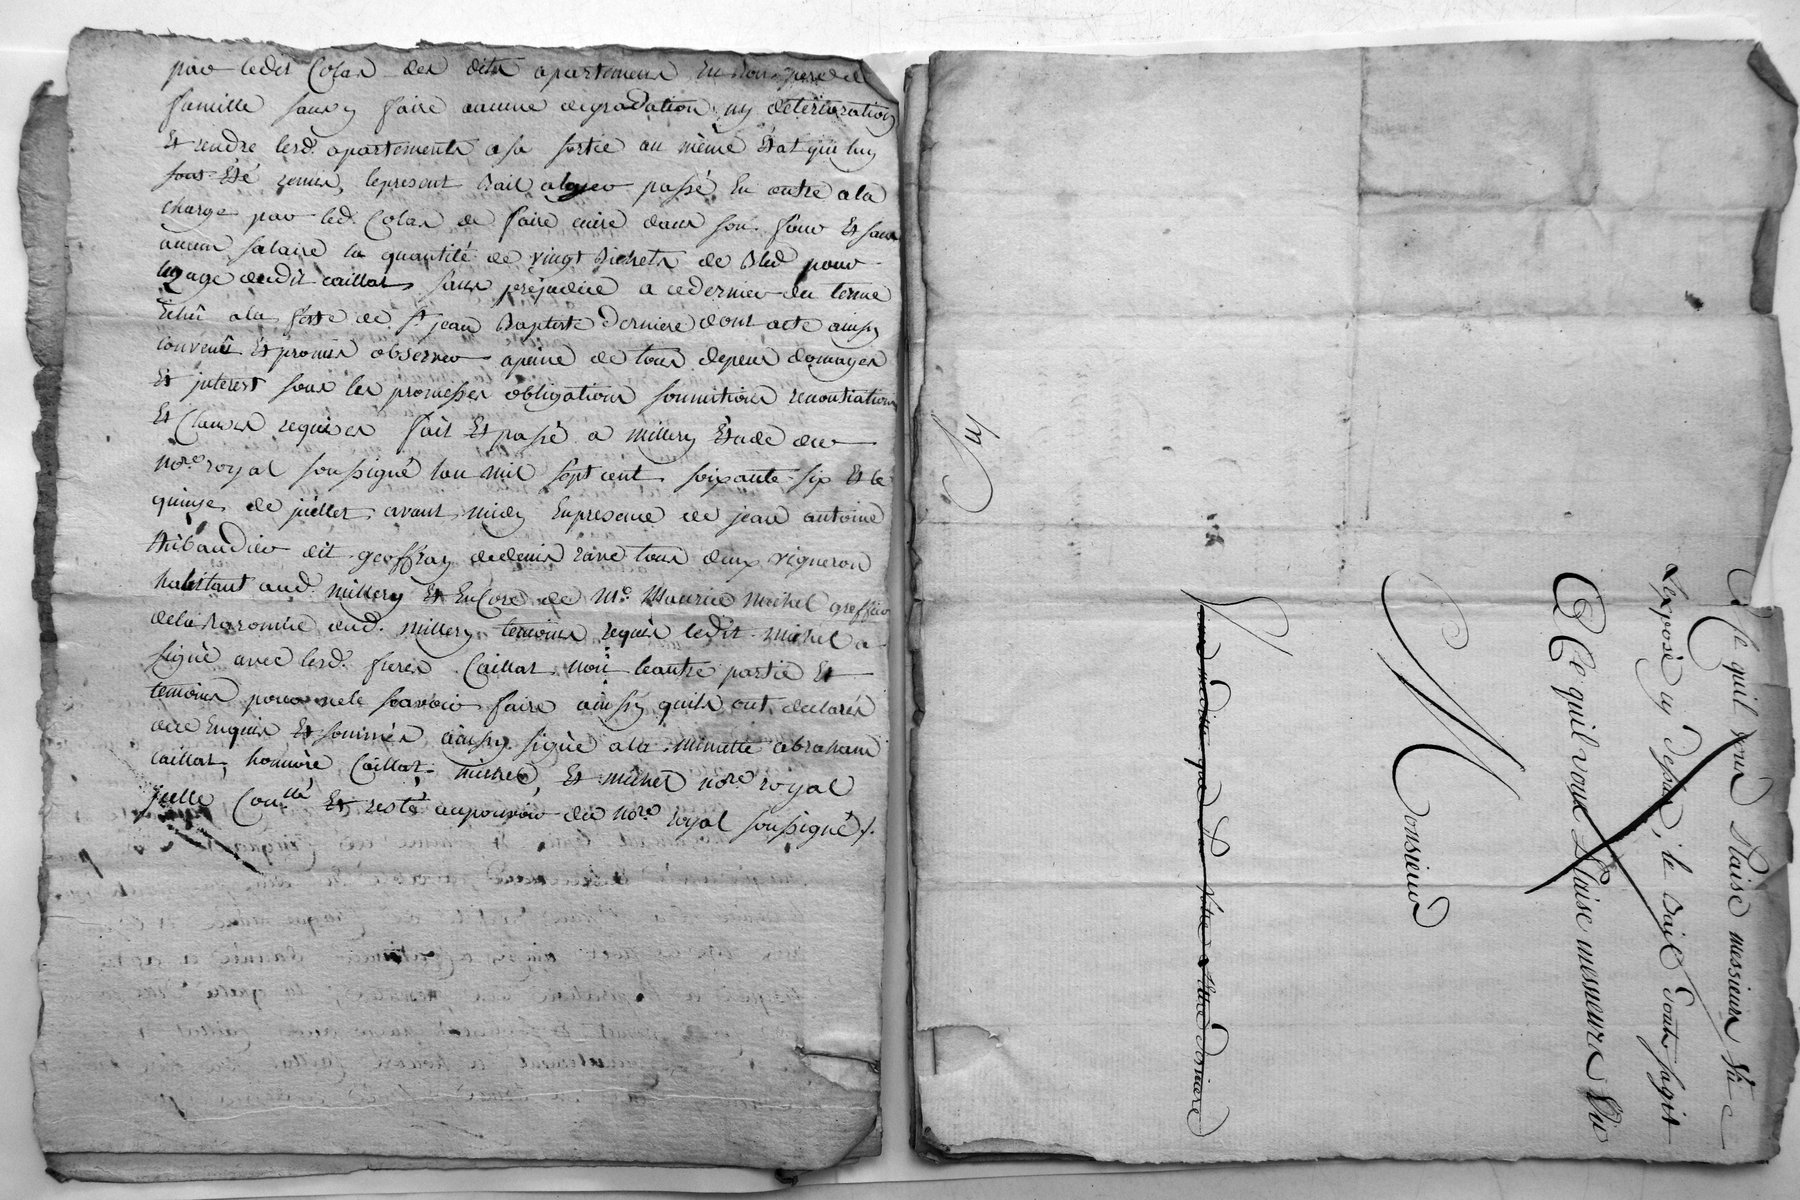 par ledit Colas des dits apartemens En bon pere de
famille sans y faire aucune degradation ny deterioration
Et rendre lesd. apartements a sa sortie au même Etat qui luy
sont Eté remis, lepresent Bail a passé En outre a la
charge par led. Colas de faire cuire dans son four Et sans
aucun salaire la quantité de vingt Bichets de Bled pour
lusage dudit Caillat, sans prejudice a cedernier du terme
Echû a la feste de St jean Baptiste derniere dont acte ainsy
convenû Et promis observer apeine de tous depens domages
Et interest sous les promesses obligations soumitions renontiations
Et Clauses requises fait Et passé a millery Etude du
nore. royal soussigné lan mil sept cent soixante six Et le
quinze de juillet avant midy Enpresence de jean antoine
thibaudier dit geoffray de denis rave tous deux vigneron
habitant aud. millery Et Encore de Me. Maurice Michel greffier
dela Baronnie dud. millery temoins requis ledit Michel a
signé avec lesd. freres Caillat non lautre partie Et
temoins pour nele scavoir faire ainsy quils ont declarés
de Enquis Et sommés ainsy signé ala minutte abraham
Caillat, honnoré Caillat, michel, Et michel nore. royal
Conllé Et resté aupouvoir du nore. royal soussigné ./.
A Ce quil vous Plaise messieurs Vû
Lexposé cy depus, le Bail dont sagit
A Ce quil vous Plaise messieurs Vû
Monsieur
votre lettre derniere